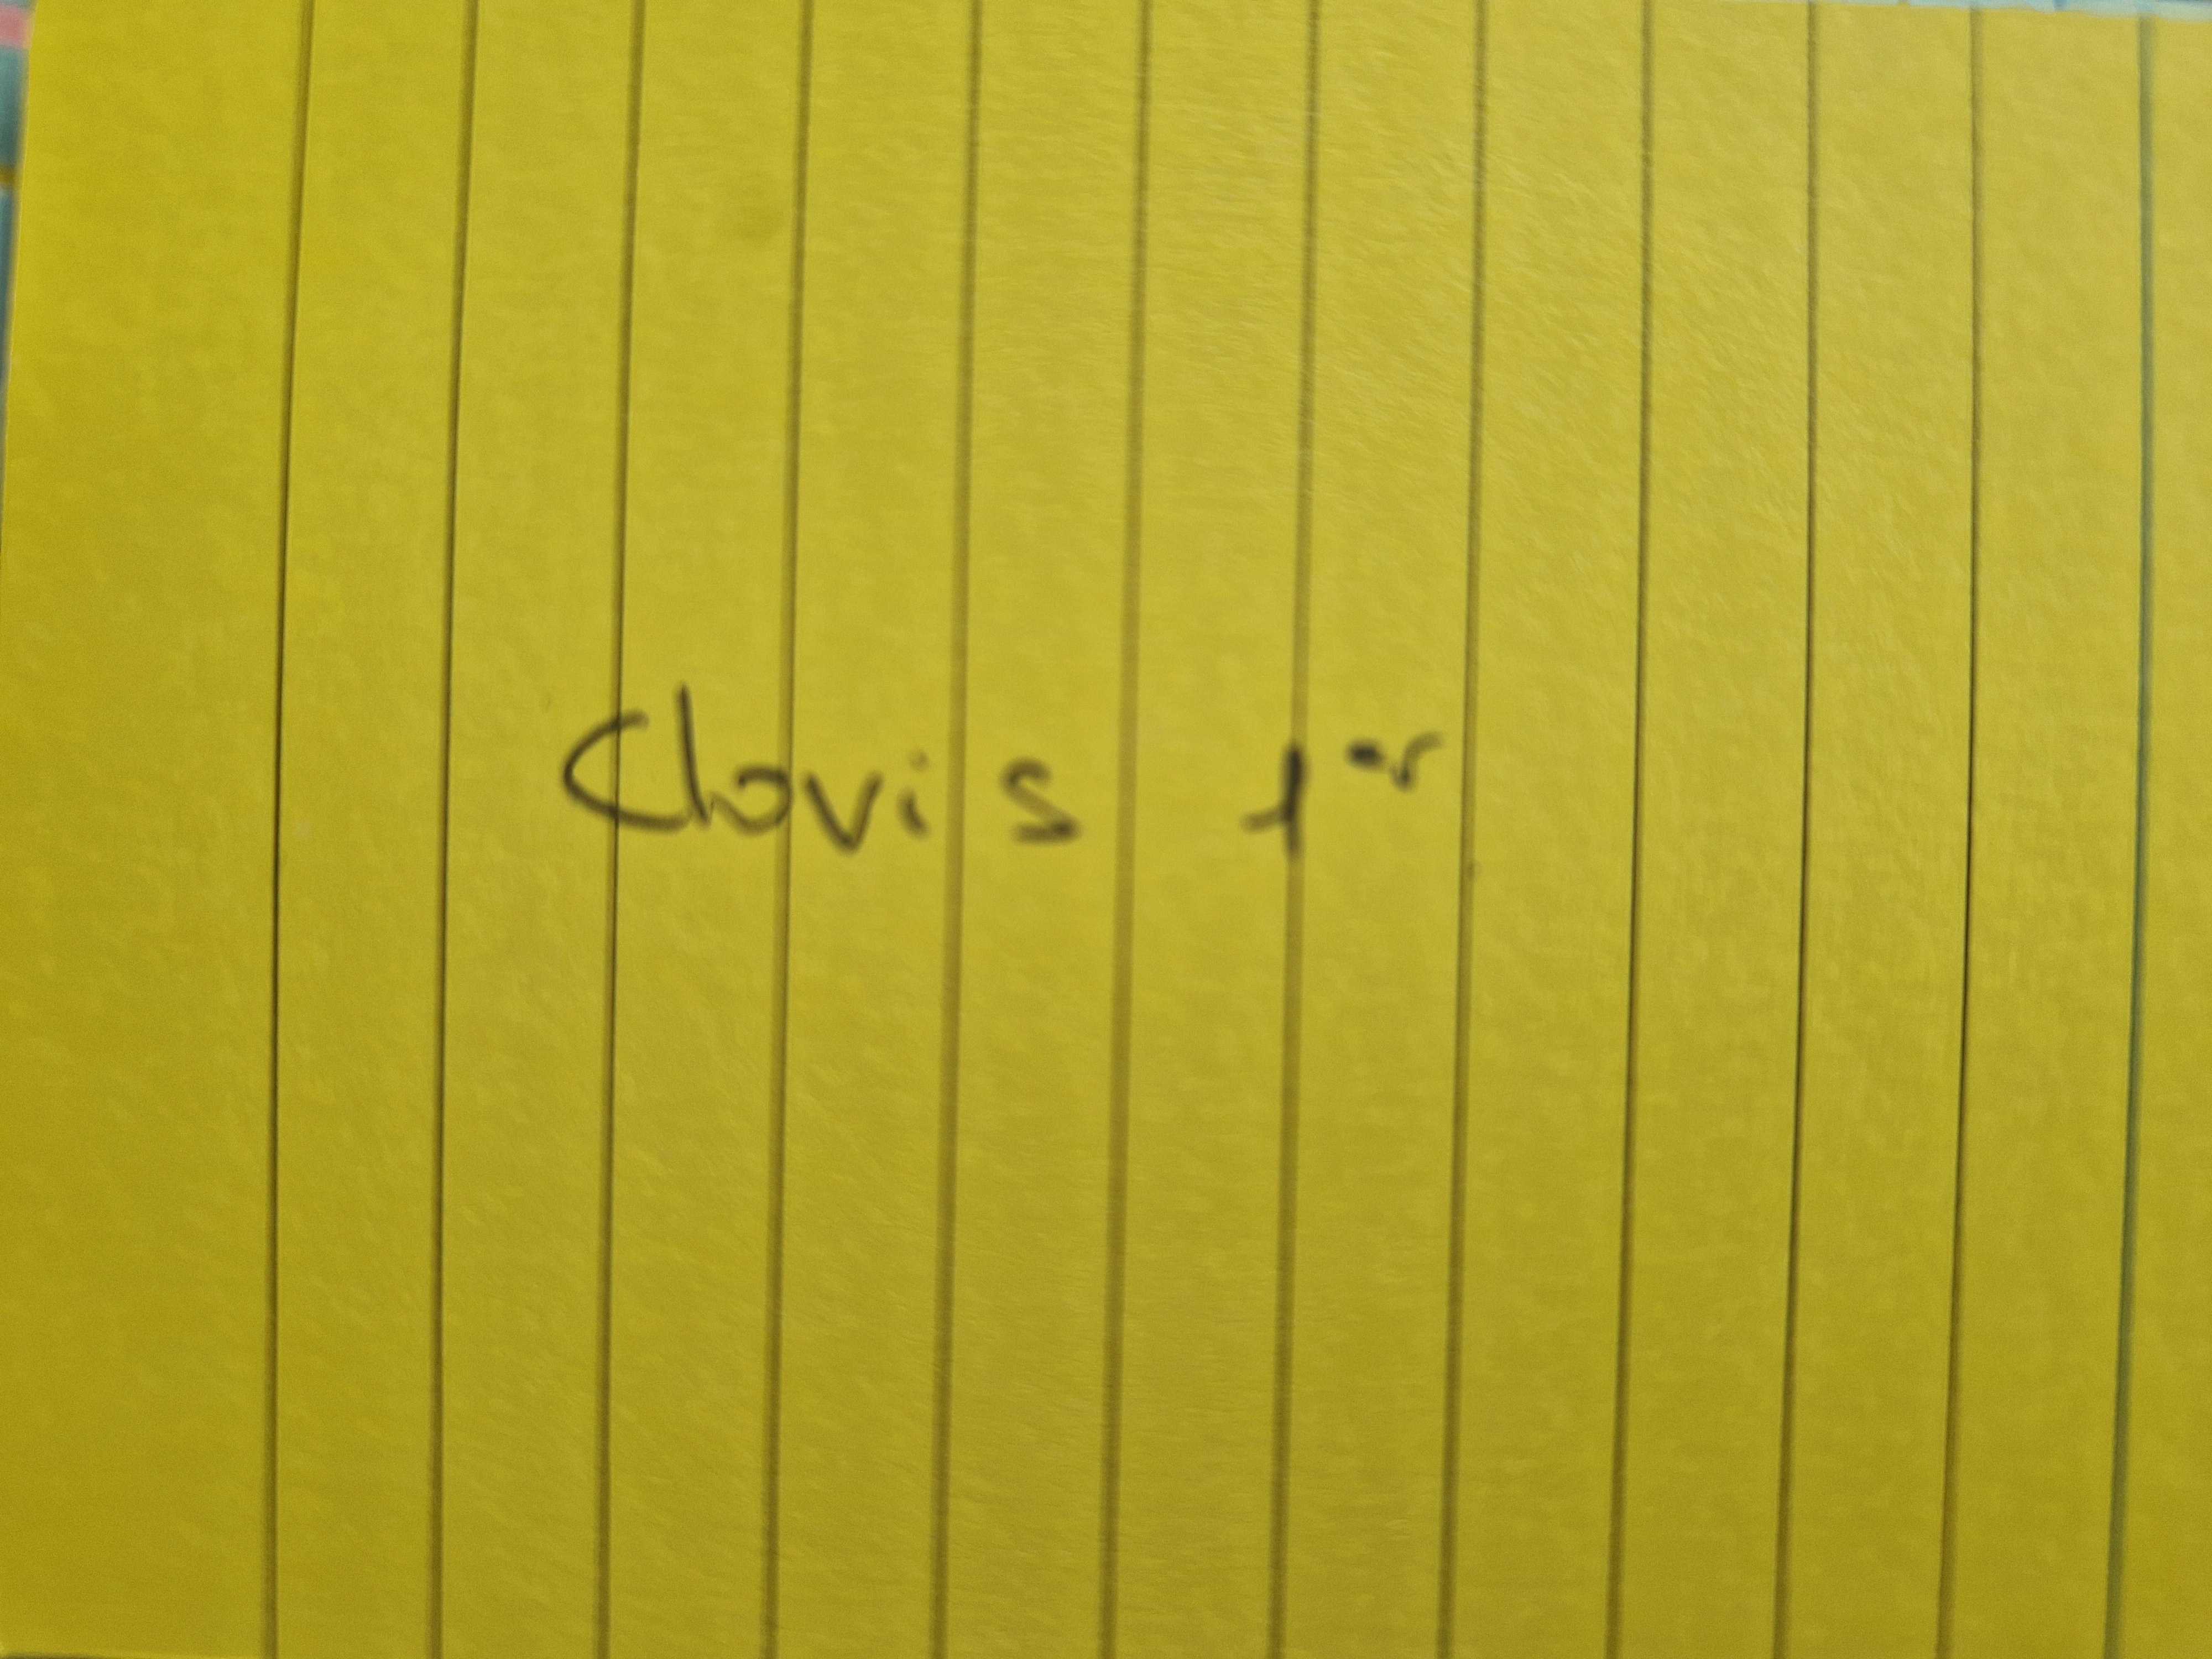 Clovis 1er